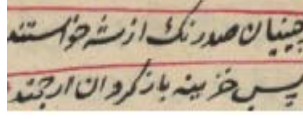 چینیان صد رنک از شه خواستند
پس خزینه باز کرد آن ارجمند